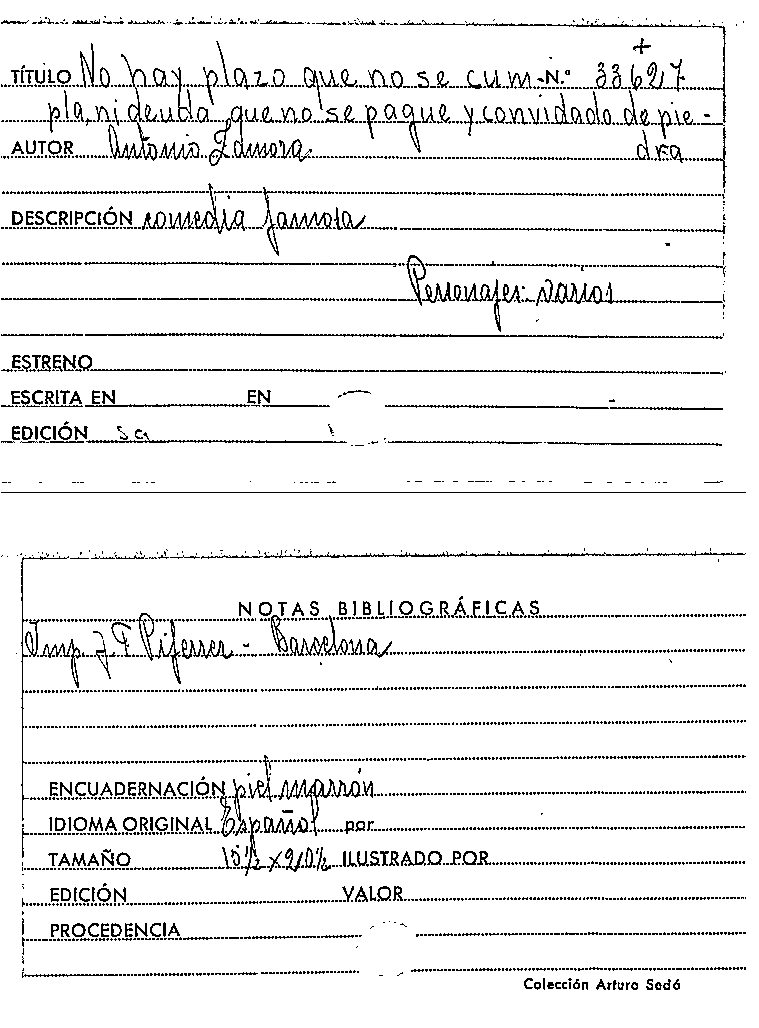 +
TÍTULO No hay plazo que no se cum- N.º 33627
pla, ni deuda que no se pague y convidado de pie-
AUTOR Antonio Zamora dra
DESCRIPCIÓN comedia famosa
Personajes: varios
ESTRENO
ESCRITA EN EN
EDICIÓN sa
NOTAS BIBLIOGRÁFICAS
Imp J F Piferrer - Barcelona
ENCUADERNACIÓN piel marrón
IDIOMA ORIGINAL Español por
TAMAÑO 15½ x 20½ ILUSTRADO POR
EDICIÓN VALOR
PROCEDENCIA
Colección Arturo Sedó